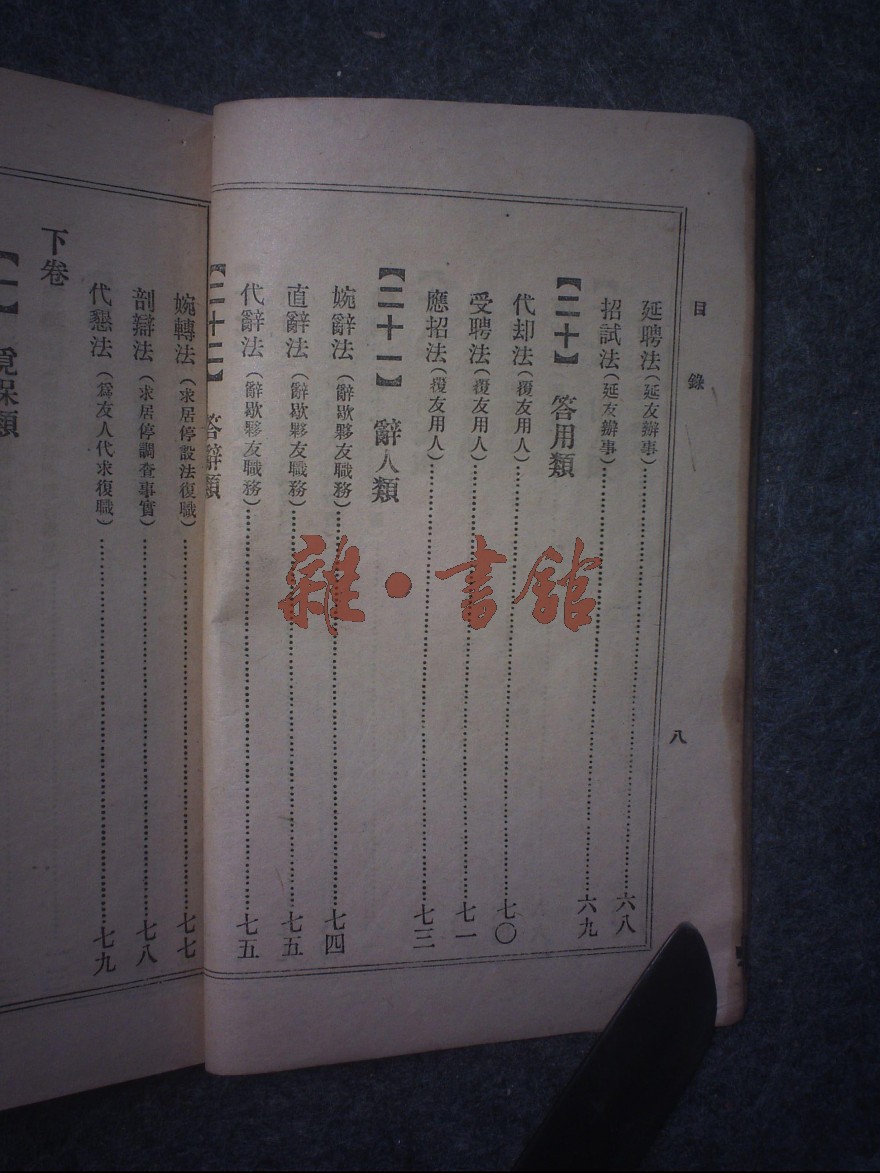 目錄
八
延聘法（延友辦事）……六八
招試法（延友辦事）……六九
【二十】 答用類
代却法（覆友用人）……七〇
受聘法（覆友用人）……七一
應招法（覆友用人）……七三
【二十一】 辭人類
婉辭法（辭歇夥友職務）……七四
直辭法（辭歇夥友職務）……七五
代辭法（辭歇夥友職務）……七五
【二十二】 答辭類
婉轉法（求居停設法復職）……七七
剖辯法（求居停調查事實）……七八
代懇法（爲友人代求復職）……七九
下卷
【一】 覓保類
雜·書館